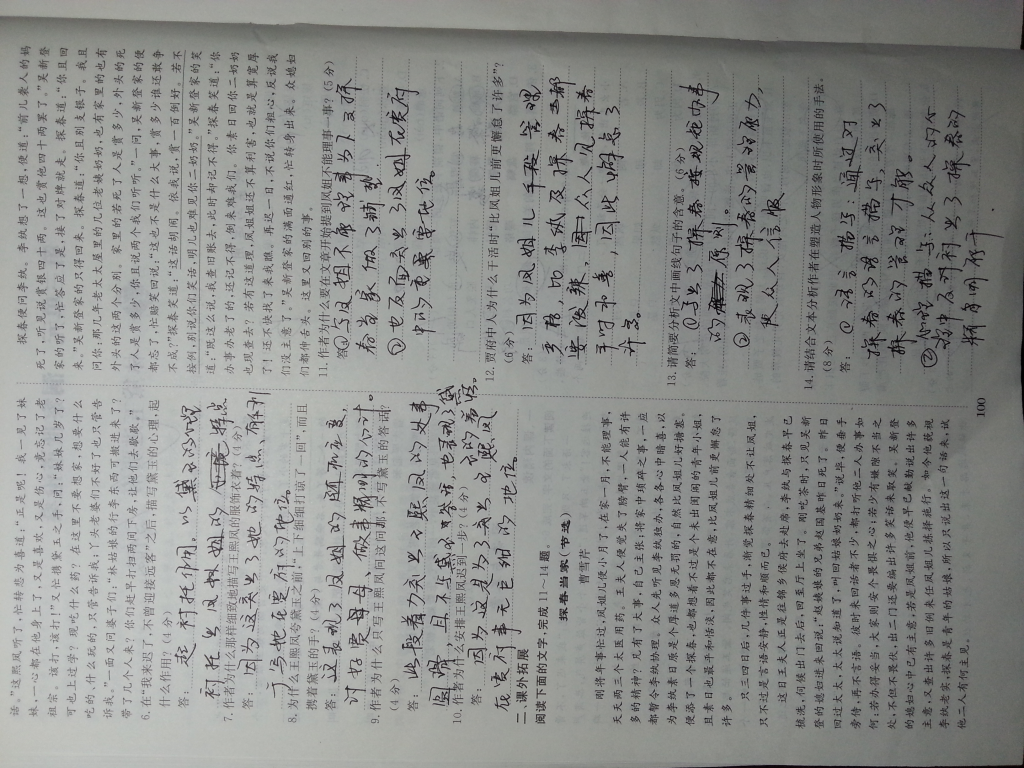 话。”这熙凤听了,忙转悲为喜道:“正是呢!我一见了妹
妹,一心都在他身上了,又是喜欢,又是伤心,竟忘记了老
祖宗。该打,该打!”又忙携黛玉之手,问:“妹妹几岁了?
可也上过学?现吃什么药?在这里不要想家,想要什么
吃的,什么玩的,只管告诉我,丫头老婆们不好了也只管告
诉我。”一面又问婆子们:“林姑娘的行李东西可搬进来了?
带了几个人来?你们赶早打扫两间下房,让他们去歇歇。”
6.在“我来迟了,不曾迎接远客”之后,描写黛玉的心理,起
什么作用?(4分)
答:起衬托作用。以黛玉的
衬托出凤姐的 特点
7.作者为什么那样细致地描写王熙凤的服饰衣着?(4分)
答:因为这突出了她的特点,有利
于写她在贾府的地位。
8.为什么王熙凤夸黛玉之前,“上下细细打谅了一回”,而且
携着黛玉的手?(4分)
答:这表现了凤姐的
讨好贾母,
9.作者为什么只写王熙凤问这问那,不写黛玉的答话?
(4分)
答:此段着力突出王熙凤的处事
圆滑,且不让黛玉答话,也表现了
10.作者为什么安排王熙凤迟到一步?(4分)
答:因为这是为了突出王熙凤
在贾府中 的地位。
二、课外拓展
阅读下面的文字,完成11~14题。
探春当家(节选)
曹雪芹
则将年事忙过,凤姐儿便小月了,在家一月,不能理事,
天天两三个太医用药。王夫人便觉失了膀臂,一人能有许
多的精神?凡有了大事,自己主张;将家中琐碎之事,一应
都暂令李纨协理。众人先听见李纨独办,各各心中暗喜,以
为李纨素日原是个厚道多恩无罚的,自然比凤姐儿好搪塞。
便添了一个探春,也都想着不过是个未出闺阁的青年小姐,
且素日也最平和恬淡,因此都不在意,比凤姐儿前更懈怠了
许多。
只三四日后,几件事过手,渐觉探春精细处不让凤姐,
只不过是言语安静,性情和顺而已。
这日王夫人正是往锦乡侯府去赴席,李纨与探春早已
梳洗,伺候出门去后,回至厅上坐了。刚吃茶时,只见吴新
登的媳妇进来回说:“赵姨娘的兄弟赵国基昨日死了。昨日
回过太太,太太说知道了,叫回姑娘奶奶来。”说毕,便垂手
旁侍,再不言语。彼时来回话者不少,都打听他二人办事如
何:若办得妥当,大家则安个畏惧之心;若少有嫌隙不当之
处,不但不畏伏,出二门还要编出许多笑话来取笑。吴新登
的媳妇心中已有主意:若是凤姐前,他便早已献勤说出许多
主意,又查出许多旧例来任凤姐儿拣择施行。如今他藐视
李纨老实,探春是青年的姑娘,所以只说出这一句话来,试
他二人有何主见。
探春便问李纨。李纨想了一想,便道:“前儿袭人的妈
死了,听见说赏银四十两。这也赏他四十两罢了。”吴新登
家的听了,忙答应了是,接了对牌就走。探春道:“你且回
来。”吴新登家的只得回来。探春道:“你且别支银子。我且
问你:那几年老太太屋里的几位老姨奶奶,也有家里的也有
外头的这两个分别。家里的若死了人是赏多少,外头的死
了人是赏多少,你且说两个我们听听。”一问,吴新登家的便
都忘了,忙陪笑回说:“这也不是什么大事,赏多少谁还敢争
不成?”探春笑道:“这话胡闹。依我说,赏一百倒好。若不
按例,别说你们笑话,明儿也难见你二奶奶。”吴新登家的笑
道:“既这么说,我查旧账去,此时却记不得。”探春道:“你
办事办老了的,还记不得,倒来难我们。你素日回你二奶奶
也现查去?若有这道理,凤姐姐还不算利害,也就是算宽厚
了!还不快找了来我瞧。再迟一日,不说你们粗心,反说我
们没主意了。”吴新登家的满面通红,忙转身出来。众媳妇
们都伸舌头。这里又回别的事。
11.作者为什么要在文章开始就写到凤姐不能理事一事?(5分)
答:①写凤姐不能理事为下文探
春当家做了铺垫
②也反面突出了凤姐在贾府
中的重要地位。
12.贾府中人为什么干活时“比凤姐儿前更懈怠了许多”?
(6分)
答:因为凤姐儿 管理
严格,比李纨及探春二都
要泼辣,因众人见探春
平时和善,因此懈怠了
许多。
13.请简要分析文中画线句子的含意。(6分)
答:①写出了探春 办事
的 原则。
②表现了探春的管理能力,
使众人信服
14.请结合文本分析作者在塑造人物形象时所使用的手法。
(8分)
答:①语言描写:通过对
探春的语言描写,突出了
探春的管理才能。
②
精明能干
100